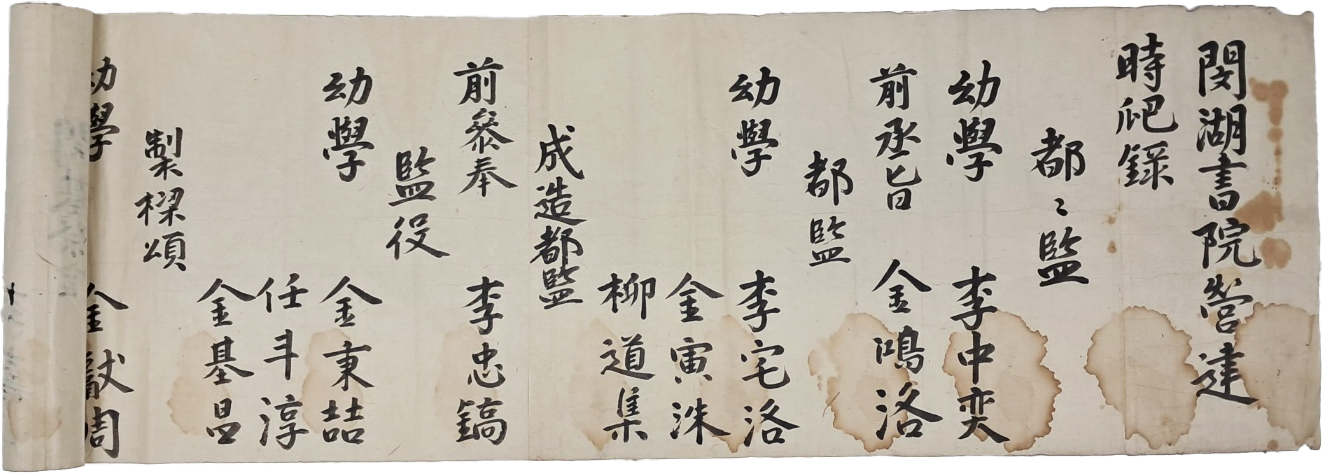 閔湖書院營建
時爬錄
都〻監
幼學 李中奕
前丞旨 金鴻洛
都監
幼學 李宅洛
金寅洙
柳道集
成造都監
前參奉 李忠鎬
監役
幼學 金東喆
任斗淳
金基昌
製樑頌
幼學 金獻周